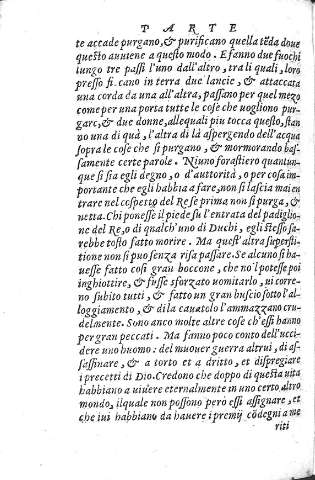 PARTE
te accade purgano, & purificano quella tẽda doue
questo auuiene a questo modo. E fanno due fuochi
lungo tre passi l'uno dall'altro, tra li quali, loro
presso fi cano in terra due lancie, & attaccata
una corda da una all'altra, passano per quel mezo
come per una porta tutte le cose che uogliono pur-
garc, & due donne, alle quali piu tocca questo, stan
no una di quà, l'altra di là aspergendo dell'acqua
sopra le cose che si purgano, & mormorando bas-
samente certe parole. Niuno forastiero quantun-
que si sia egli degno, o d'auttorità, o per cosa im-
portante che egli habbia a fare, non si lascia mai en
trare nel cospetto del Re se prima non si purga, &
netta. Chi ponesse il piede su l'entrata del padiglio
ne del Re, o di qualch'uno di Duchi, egli stesso sa-
rebbe tosto fatto morire. Ma quest'altra supersti-
tione non si puo senza risa passare. Se alcuno si ha-
uesse fatto cosi gran boccone, che no'l potesse poi
inghiottire, & fusse sforzato uomitarlo, ui corre-
no subito tutti, & fatto un gran buscio sotto l'al-
loggiamento, & di la cauatolo l'ammazzano cru-
delmente. Sono anco molte altre cose ch'essi hanno
per gran peccati. Ma fanno poco conto dell'ucci-
dere uno huomo: del muouer guerra altrui, di as-
sassinare, & a torto et a dritto, et dispregiare
i precetti di Dio. Credono che doppo di questa uita
habbiano a uiuere eternalmente in uno certo altro
mondo, il quale non possono però essi assignare, et
che iui habbiano da hauere i premij cõdegni a me
riti